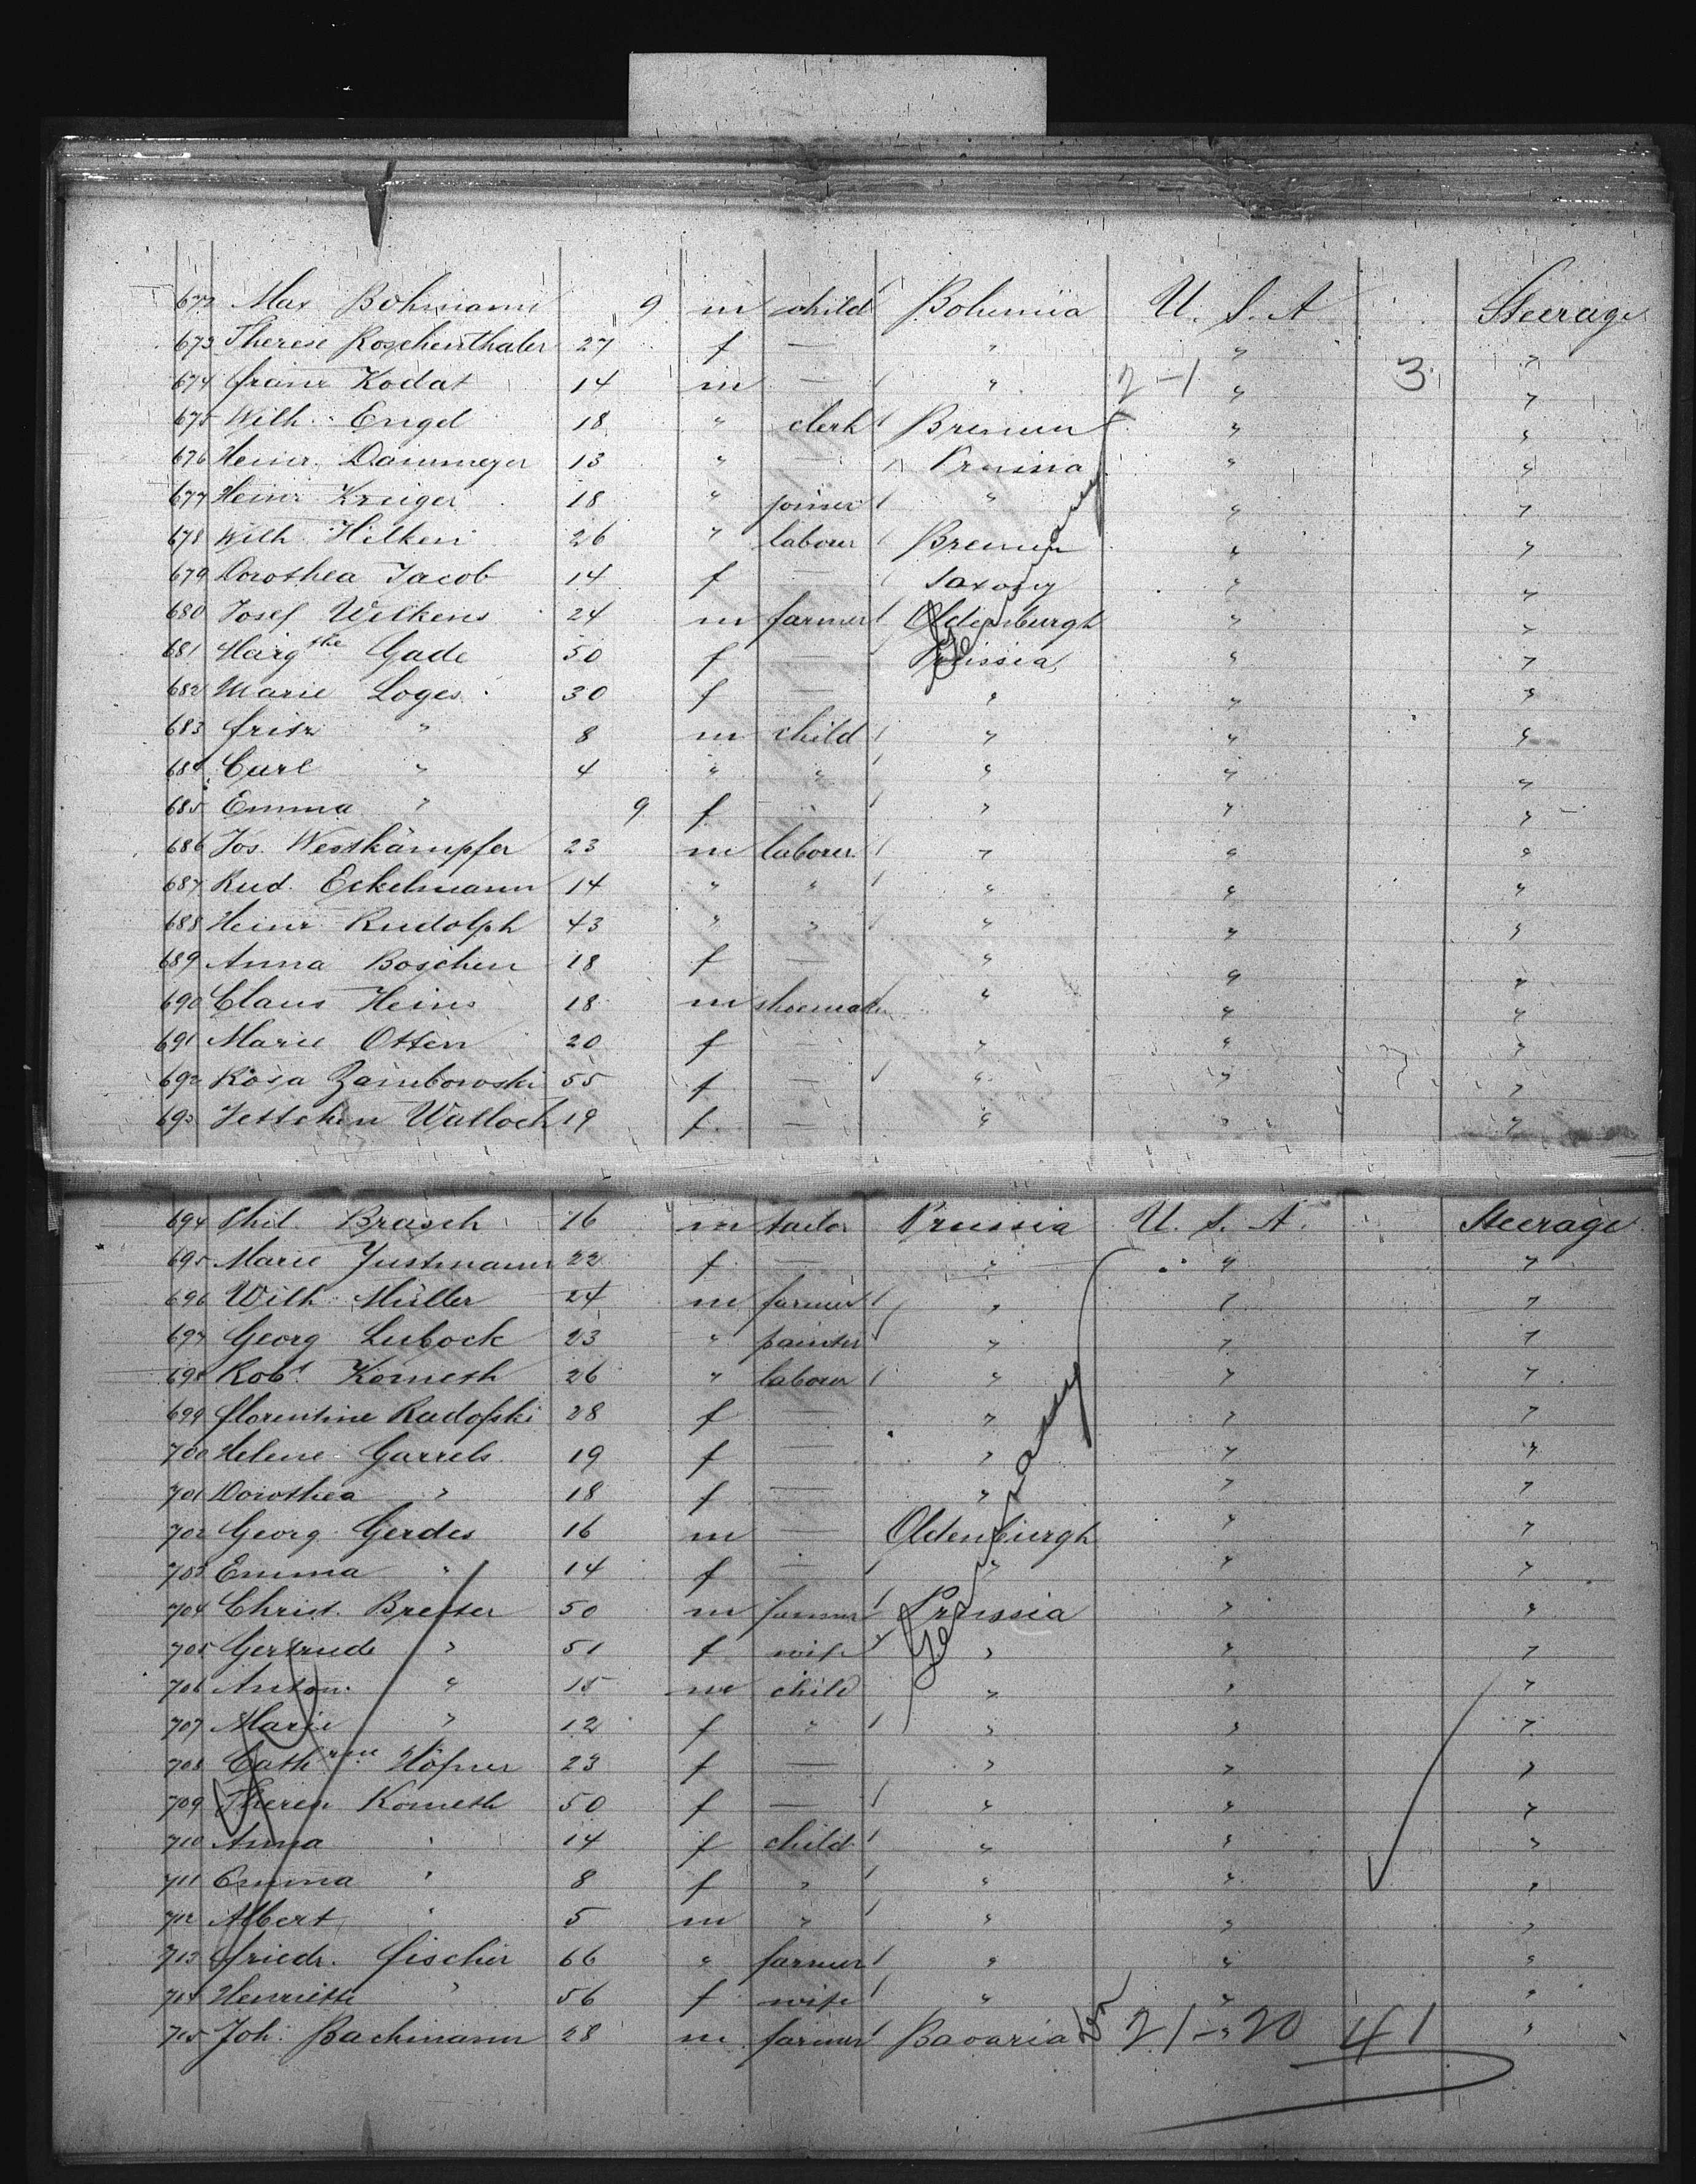 672 Max Bohmann 9 m child Bohemia U. S. A Steerage
673 Therese Roschenthaler 27 f — " " "
674 Franz Kodat 14 m — " 2-1 " 3 "
675 Wilh. Engel 18 " clerk Bremen " "
676 Heinr. Dammeyer 13 " — Prussia " "
677 Heinr Kruger 18 " joiner " " "
678 Wilh Hilken 26 " labourer Bremen " "
679 Dorothea Jacob 14 f — Saxony " "
680 Josef Wilkens 24 m farmer Oldenburgh " "
681 Margthe Gade 50 f — Prussia " "
682 Marie Loges 30 f — " " "
683 Fritz " 8 m child " " "
684 Carl " 4 " " " " "
685 Emma " 9 f — " " "
686 Jos. Westkämpfer 23 m laborer " " "
687 Rud. Eckelmann 14 " " " " "
688 Heinr Rudolph 43 " " " " "
689 Anna Boschen 18 f — " " "
690 Claus Heins 18 m shoemaker " " "
691 Marie Otten 20 f — " " "
692 Rosa Zambowski 55 f — " " "
693 Jettchen Walloch 19 f — " " "
Germany
694 Phil. Brasch 16 m tailor Prussia U. S. A. Steerage
695 Marie Justmann 22 f — " " "
696 Wilh Müller 24 m farmer " " "
697 Georg Lubock 23 " painter " " "
698 Robt Kometh 26 " laborer " " "
699 Florentine Radofski 28 f — " " "
700 Helene Garrels 19 f — " " "
701 Dorothea " 18 f — " " "
702 Georg Gerdes 16 m — Oldenburgh " "
703 Emma " 14 f — " " "
704 Christ. Bretter 50 m farmer Prussia " "
705 Gertrude " 51 f wife " " "
706 Anton " 15 m child " " "
707 Marie " 12 f " " " "
708 Cathrine Höfner 23 f — " " "
709 Therese Kometh 50 f — " " "
710 Anna " 14 f child " " "
711 Emma " 8 f " " " "
712 Albert " 5 m " " " "
713 Friedr. Fischer 66 " farmer " " "
714 Henriette " 56 f wife " " "
715 Joh. Bachmann 28 m farmer Bavaria 21-20 41 "
Germany